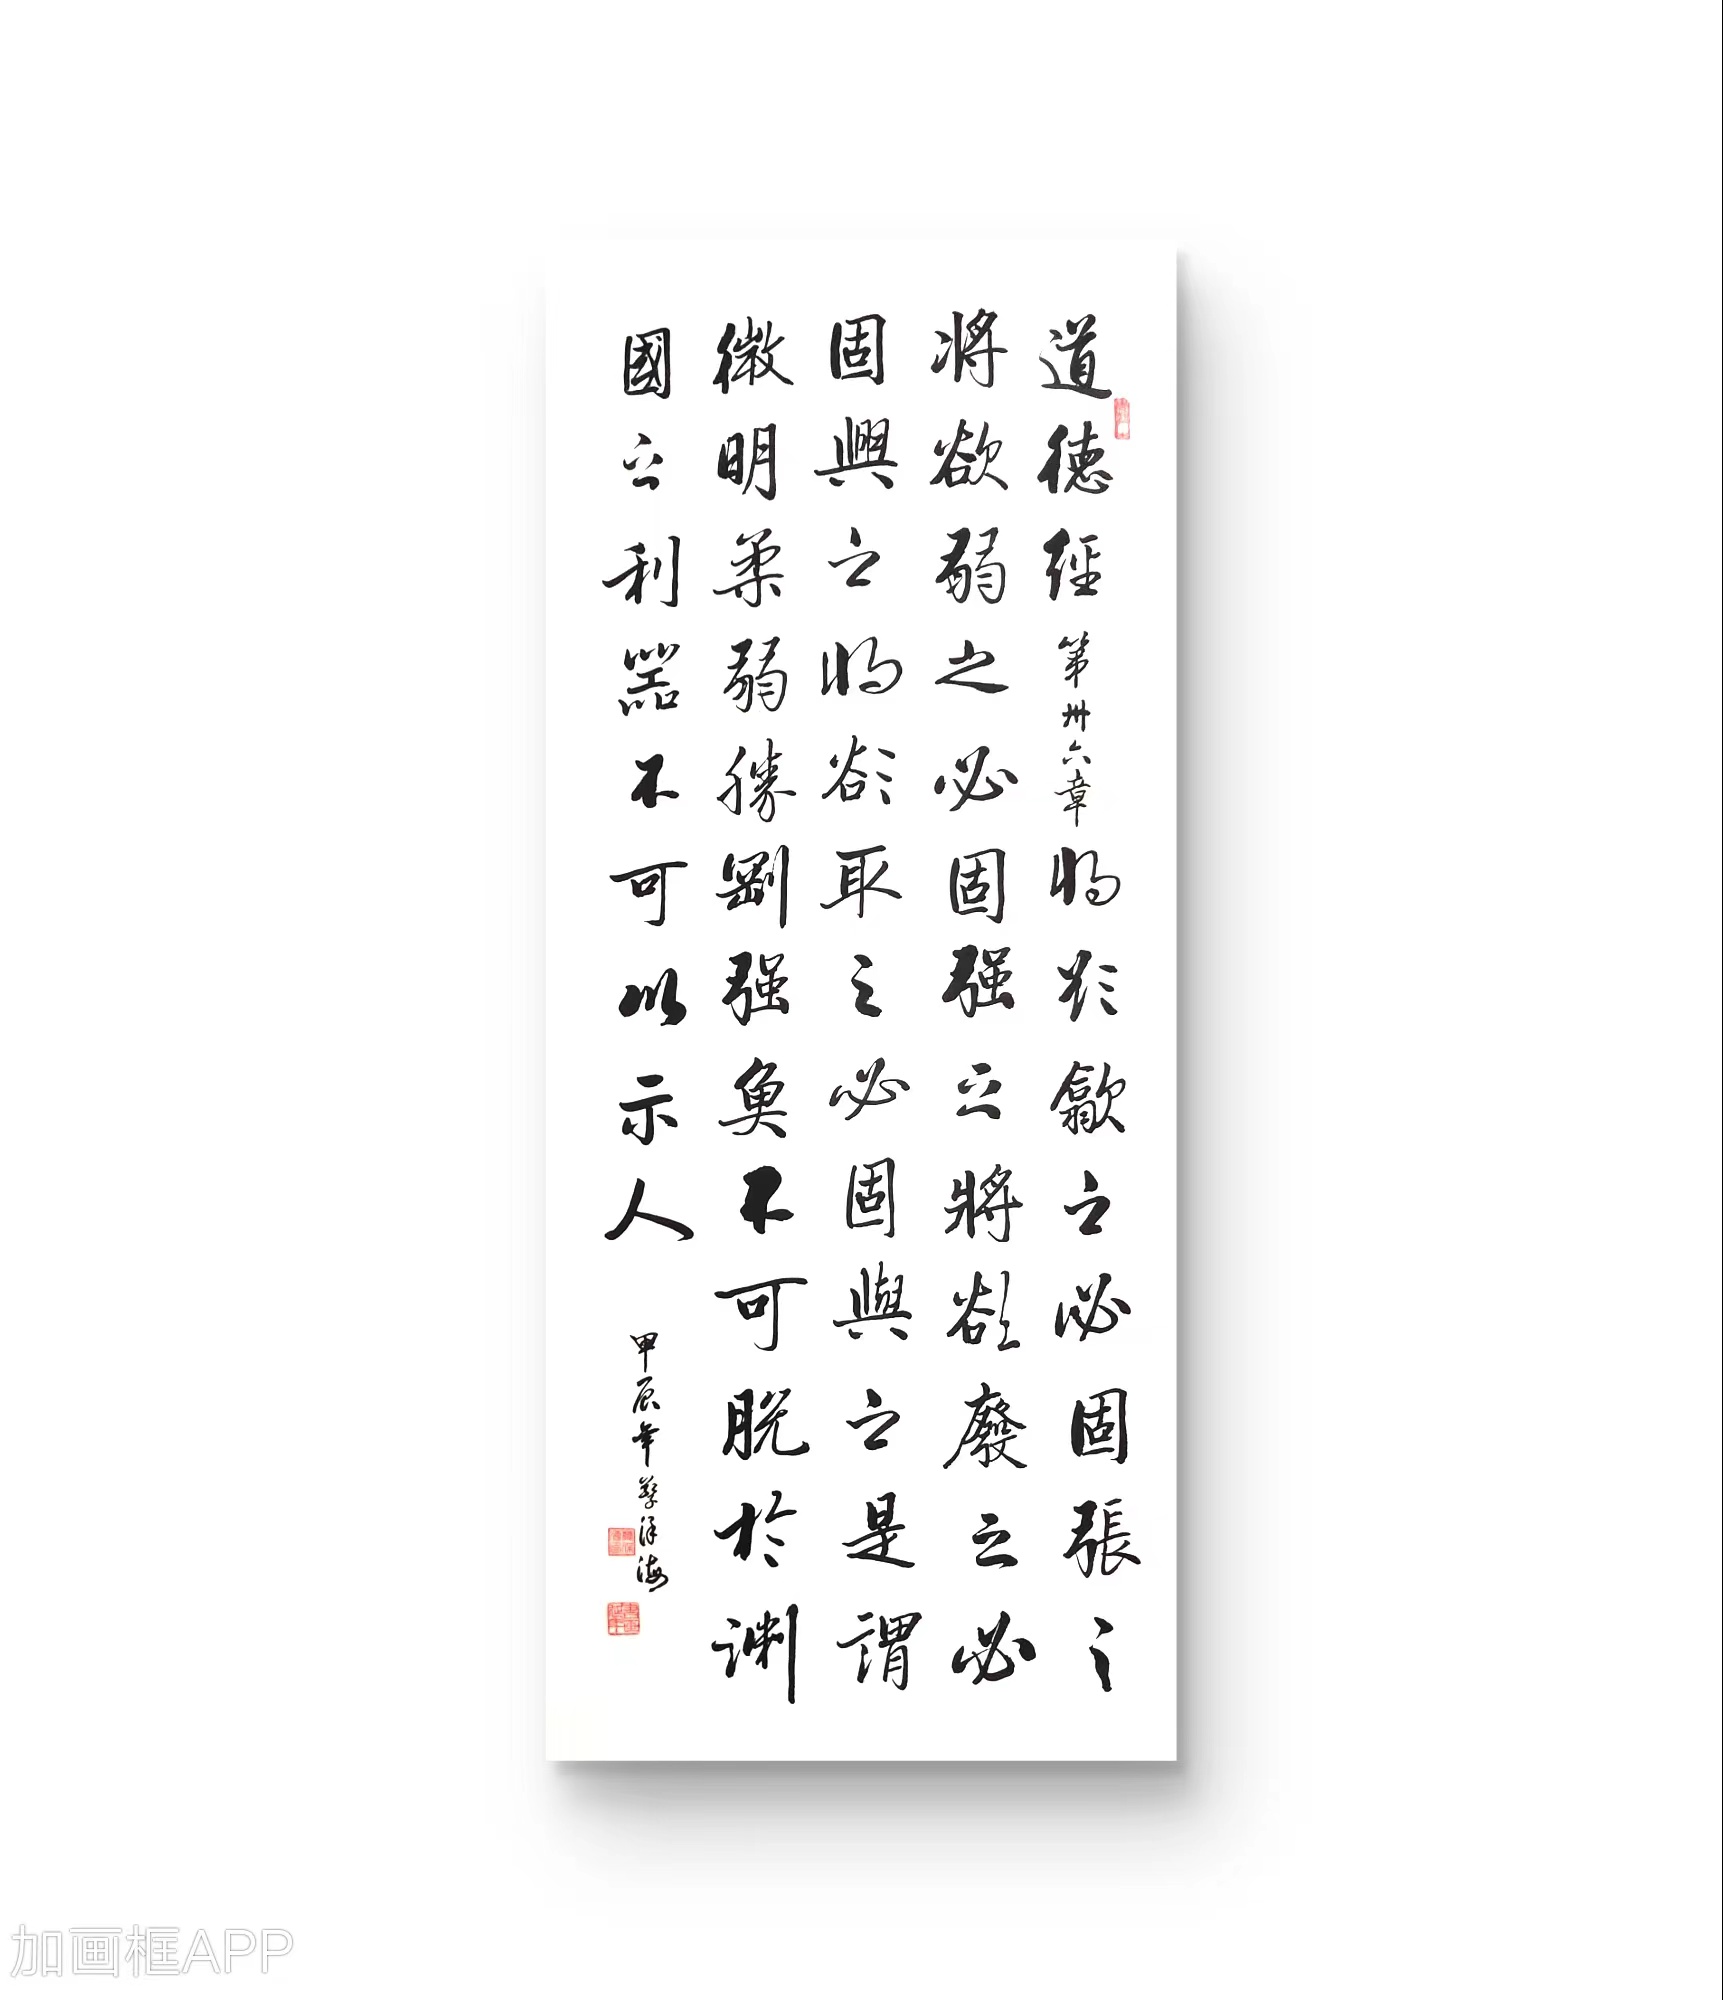 道德經第卅六章將欲歙之必固張之
將欲弱之必固强之將欲廢之必
固興之將欲取之必固與之是謂
微明柔弱勝剛强魚不可脱於淵
國之利器不可以示人
甲辰年 海
加画框APP